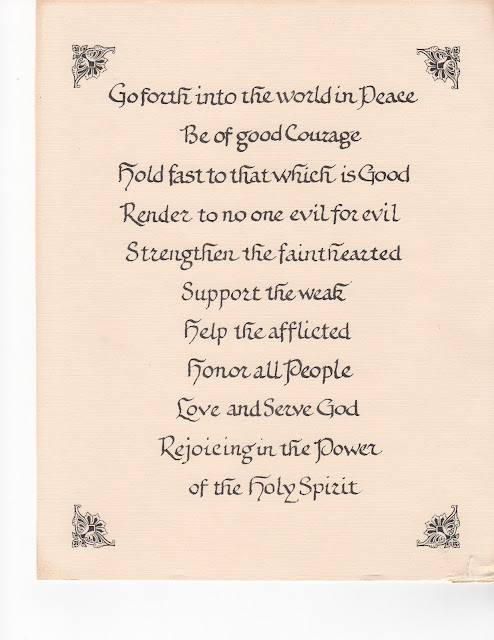 Go forth into the world in Peace
Be of good Courage
Hold fast to that which is Good
Render to no one evil for evil
Strengthen the fainthearted
Support the weak
Help the afflicted
Honor all People
Love and Serve God
Rejoicing in the Power
of the Holy Spirit